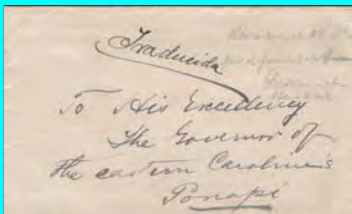 Traducida
To His Excellency
The Governor of
the eastern Carolines
Ponapi